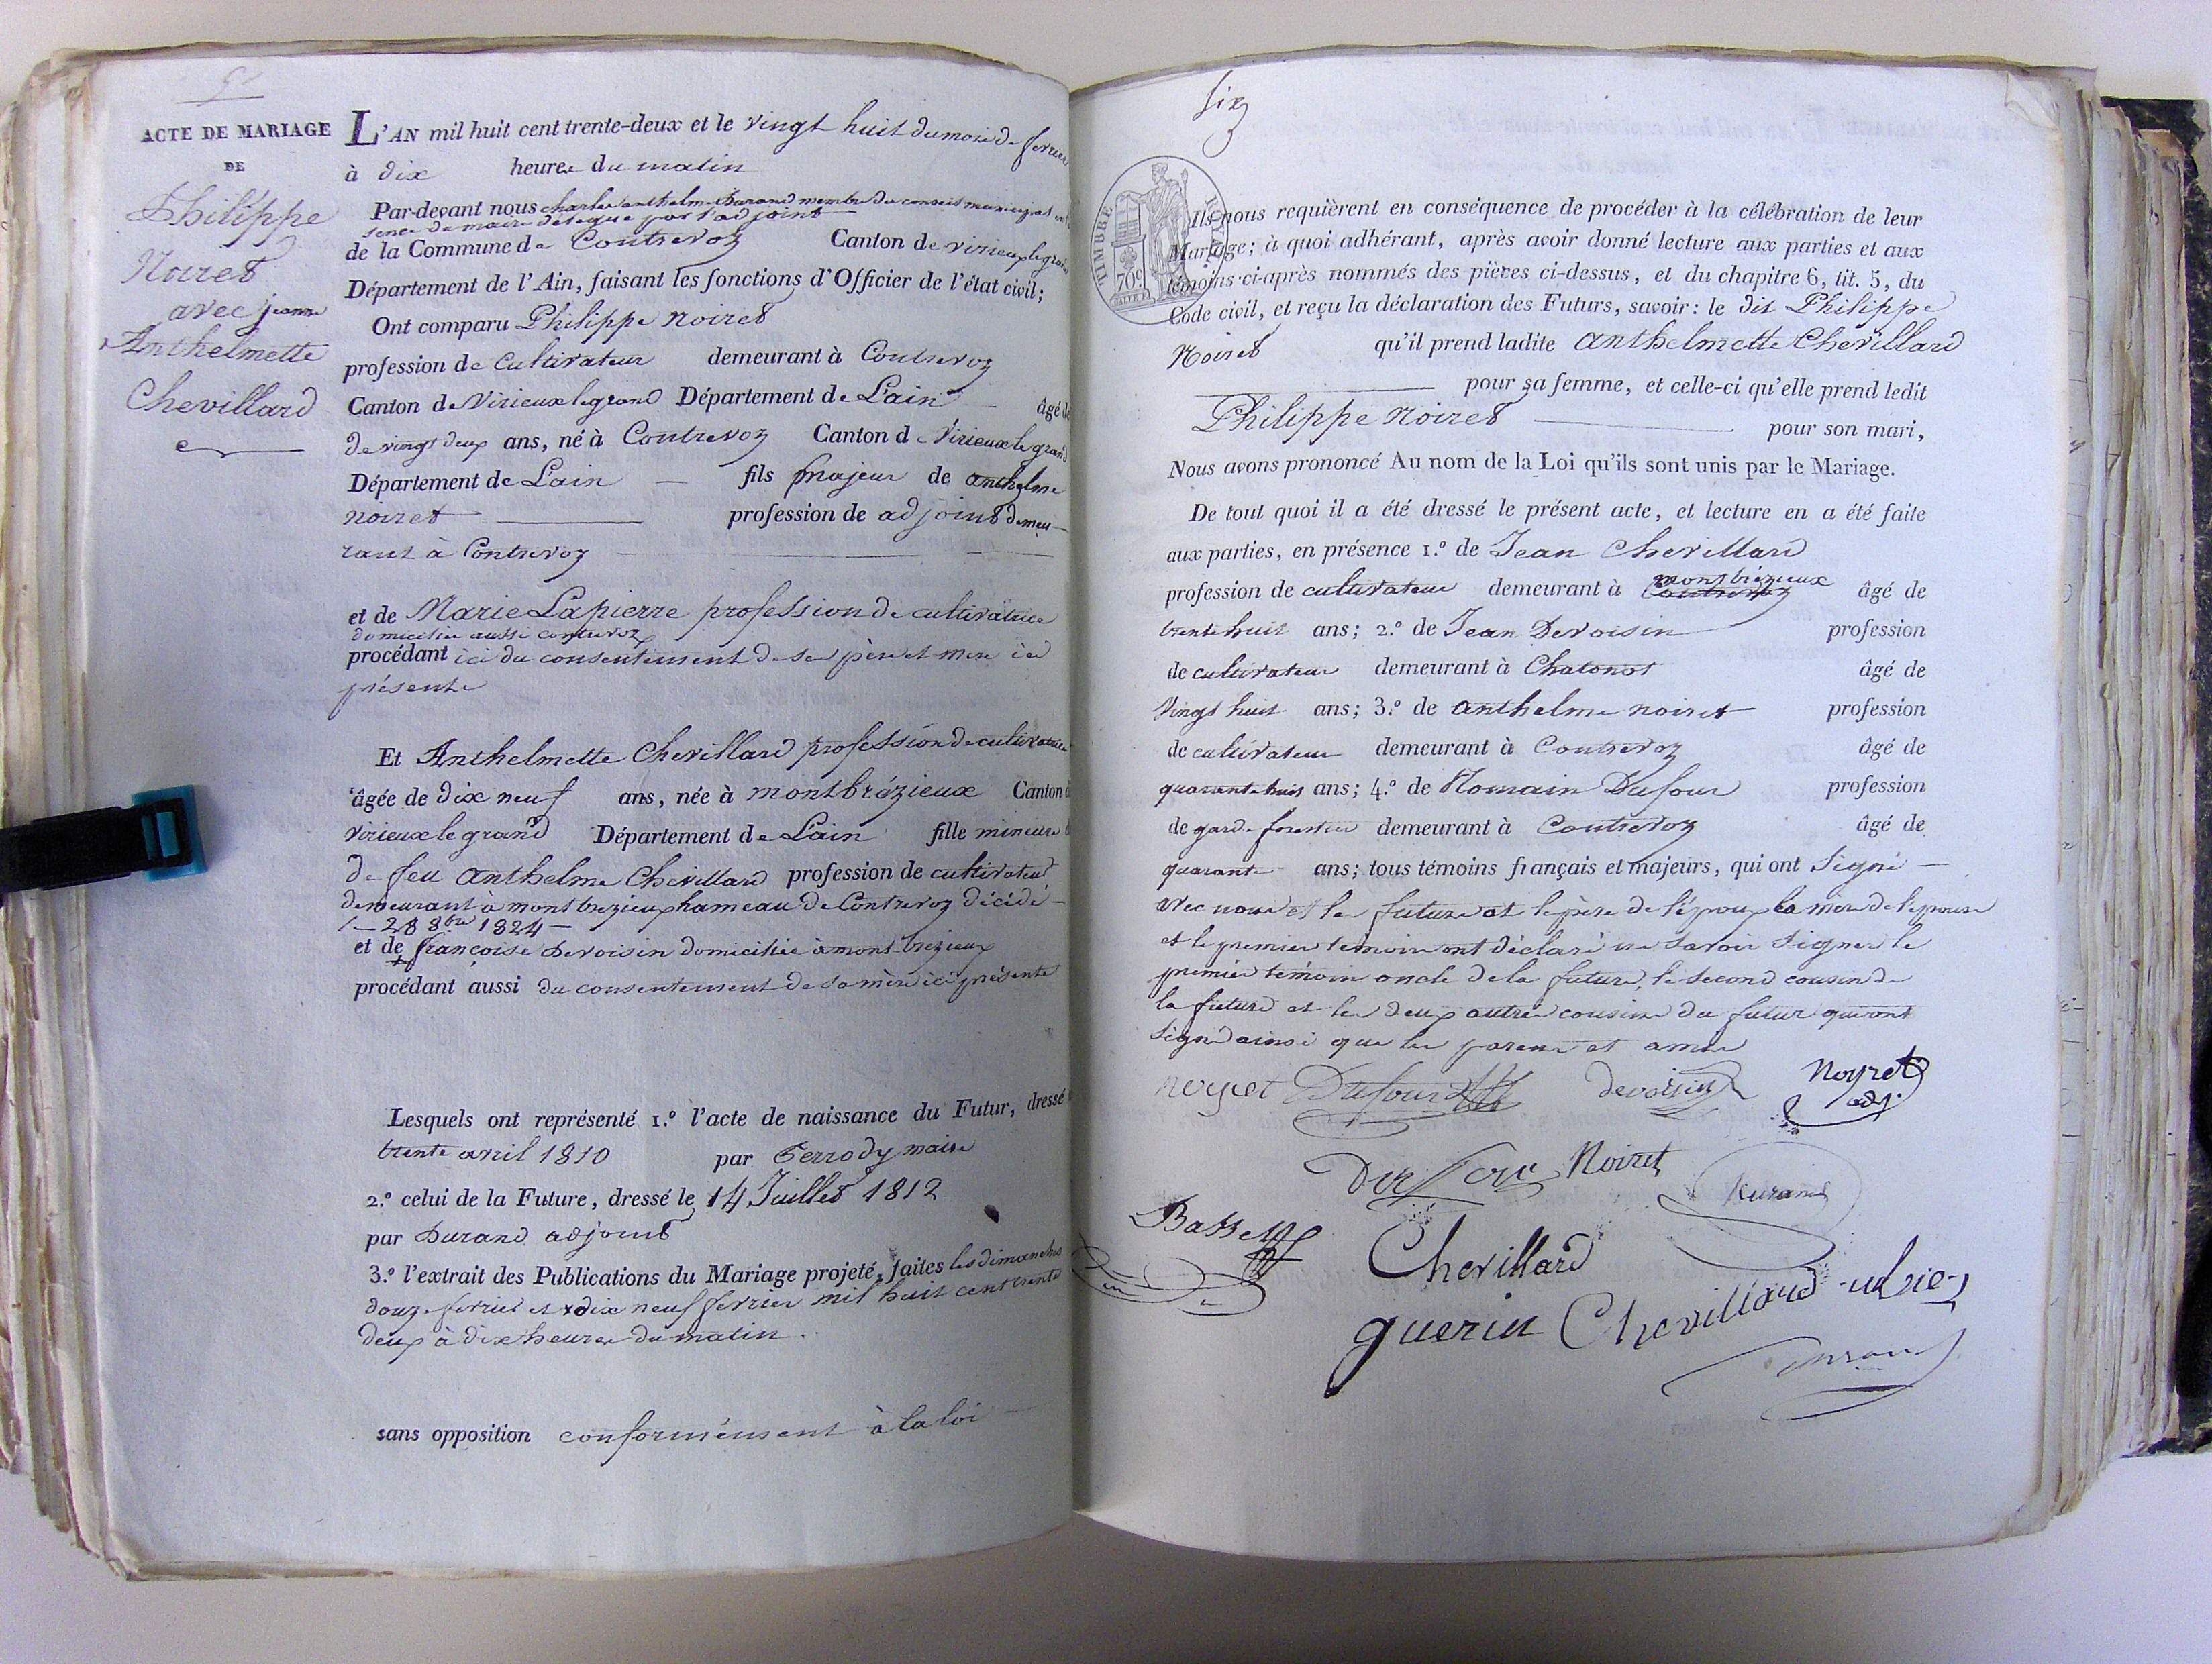 5
ACTE DE MARIAGE
DE
Philippe
Noiret
avec jeanne
Anthelmette
Chevillard
L'AN mil huit cent trente-deux et le vingt huit du mois de fevrier
à dix heures du matin
Par-devant nous charles anthelme Durand membre du conseil municipal en l'ab
sence de maire délégué par l'adjoint
de la Commune de Contrevoz Canton de virieux le grand
Département de l'Ain, faisant les fonctions d'Officier de l'état civil;
Ont comparu Philippe noiret
profession de Cultivateur demeurant à Contrevoz
Canton de Virieux le grand Département de L'ain âgé de
de vingt deux ans, né à Contrevoz Canton de Virieux le grand
Département de L'ain fils majeur de anthelme
noiret profession de adjoint demeu
rant à Contrevoz
et de Marie Lapierre profession de cultivatrice
domiciliée aussi contrevoz
procédant ici du consentement de ses père et mere ici
présents
Et Anthelmette Chevillard profession de cultivatrice
âgée de dix neuf ans, née à montbrézieux Canton de
Virieux le grand Département de L'ain fille mineure
de feu anthelme Chevillard profession de cultivateur
demeurant à montbrezieux hameau de Contrevoz décédé
le 28 8bre 1824
et de françoise Devoisin domiciliée à montbrezieux
procédant aussi du consentement de sa mère ici présente
Lesquels ont représenté 1.º l'acte de naissance du Futur, dressé le
trente avril 1810 par Ferrody maire
2.º celui de la Future, dressé le 14 Juillet 1812
par Durand adjoint
3.º l'extrait des Publications du Mariage projeté, faites les dimanches
douze fevrier et dix neuf fevrier mil huit cent trente
deux à dix heures du matin.
sans opposition conformément à la loi
six
TIMBRE
70c
Ils nous requièrent en conséquence de procéder à la célébration de leur
Mariage; à quoi adhérant, après avoir donné lecture aux parties et aux
témoins ci-après nommés des pièces ci-dessus, et du chapitre 6, tit. 5, du
Code civil, et reçu la déclaration des Futurs, savoir: le dit Philippe
Noiret qu'il prend ladite anthelmette Chevillard
pour sa femme, et celle-ci qu'elle prend ledit
Philippe noiret pour son mari,
Nous avons prononcé Au nom de la Loi qu'ils sont unis par le Mariage.
De tout quoi il a été dressé le présent acte, et lecture en a été faite
aux parties, en présence 1.º de Jean Chevillard
montbrezieux
profession de cultivateur demeurant à Contrevoz âgé de
trente huit ans; 2.º de Jean Devoisin profession
de cultivateur demeurant à Chatonot âgé de
Vingt huit ans; 3.º de anthelme noiret profession
de cultivateur demeurant à Contrevoz âgé de
quarante huit ans; 4.º de Romain Dufour profession
de garde forestier demeurant à Contrevoz âgé de
quarante ans; tous témoins français et majeurs, qui ont Signé
avec nous et les futurs et le père de l'époux la mère de l'épouse
et le premier temoin ont déclaré ne savoir signer le
premier témoin oncle de la future, le second cousin de
la future et les deux autres cousins du futur qui ont
Signé ainsi que les parens et amis
noyret Dufour devoisin Noyret
adj.
Noiret Durand
Chevillard
guerin Chevillard
Durand